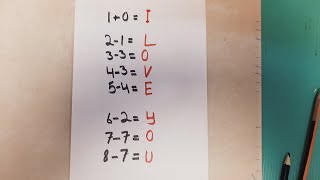 1+0= I
2-1= L
3-3= O
4-3= V
5-4= E
6-2= Y
7-7= O
8-7= U